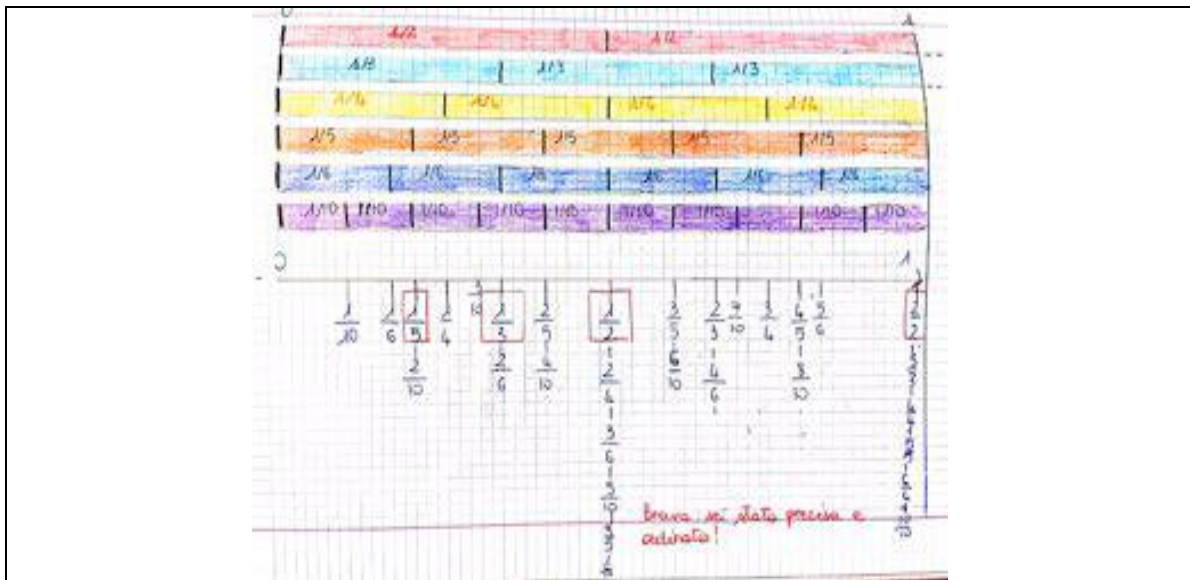 0 1
1/2 1/2
1/3 1/3 1/3
1/4 1/4 1/4 1/4
1/5 1/5 1/5 1/5 1/5
1/6 1/6 1/6 1/6 1/6 1/6
1/10 1/10 1/10 1/10 1/10 1/10 1/10 1/10 1/10
0 1
1/10 1/6 1/5 1/4 3/10 1/3 2/5 1/2 3/5 2/3 7/10 3/4 4/5 5/6 2/2
2/10 2/6 4/10 2/4 6/10 4/6 8/10
3/6
Brava, sei stata precisa e
ordinata!